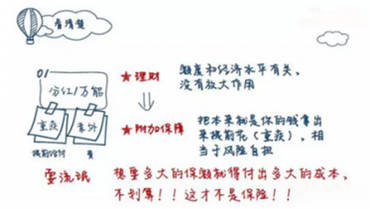 看清楚
01
分红/万能
重疾
意外
提前给付
★ 理财
额度和经济水平有关,
没有放大作用
★ 附加保障
把本来就是你的钱拿出
来提前花(重疾),相
当于风险自担
耍流氓
想要多大的保额就得付出多大的成本,
不划算!!这才不是保险!!